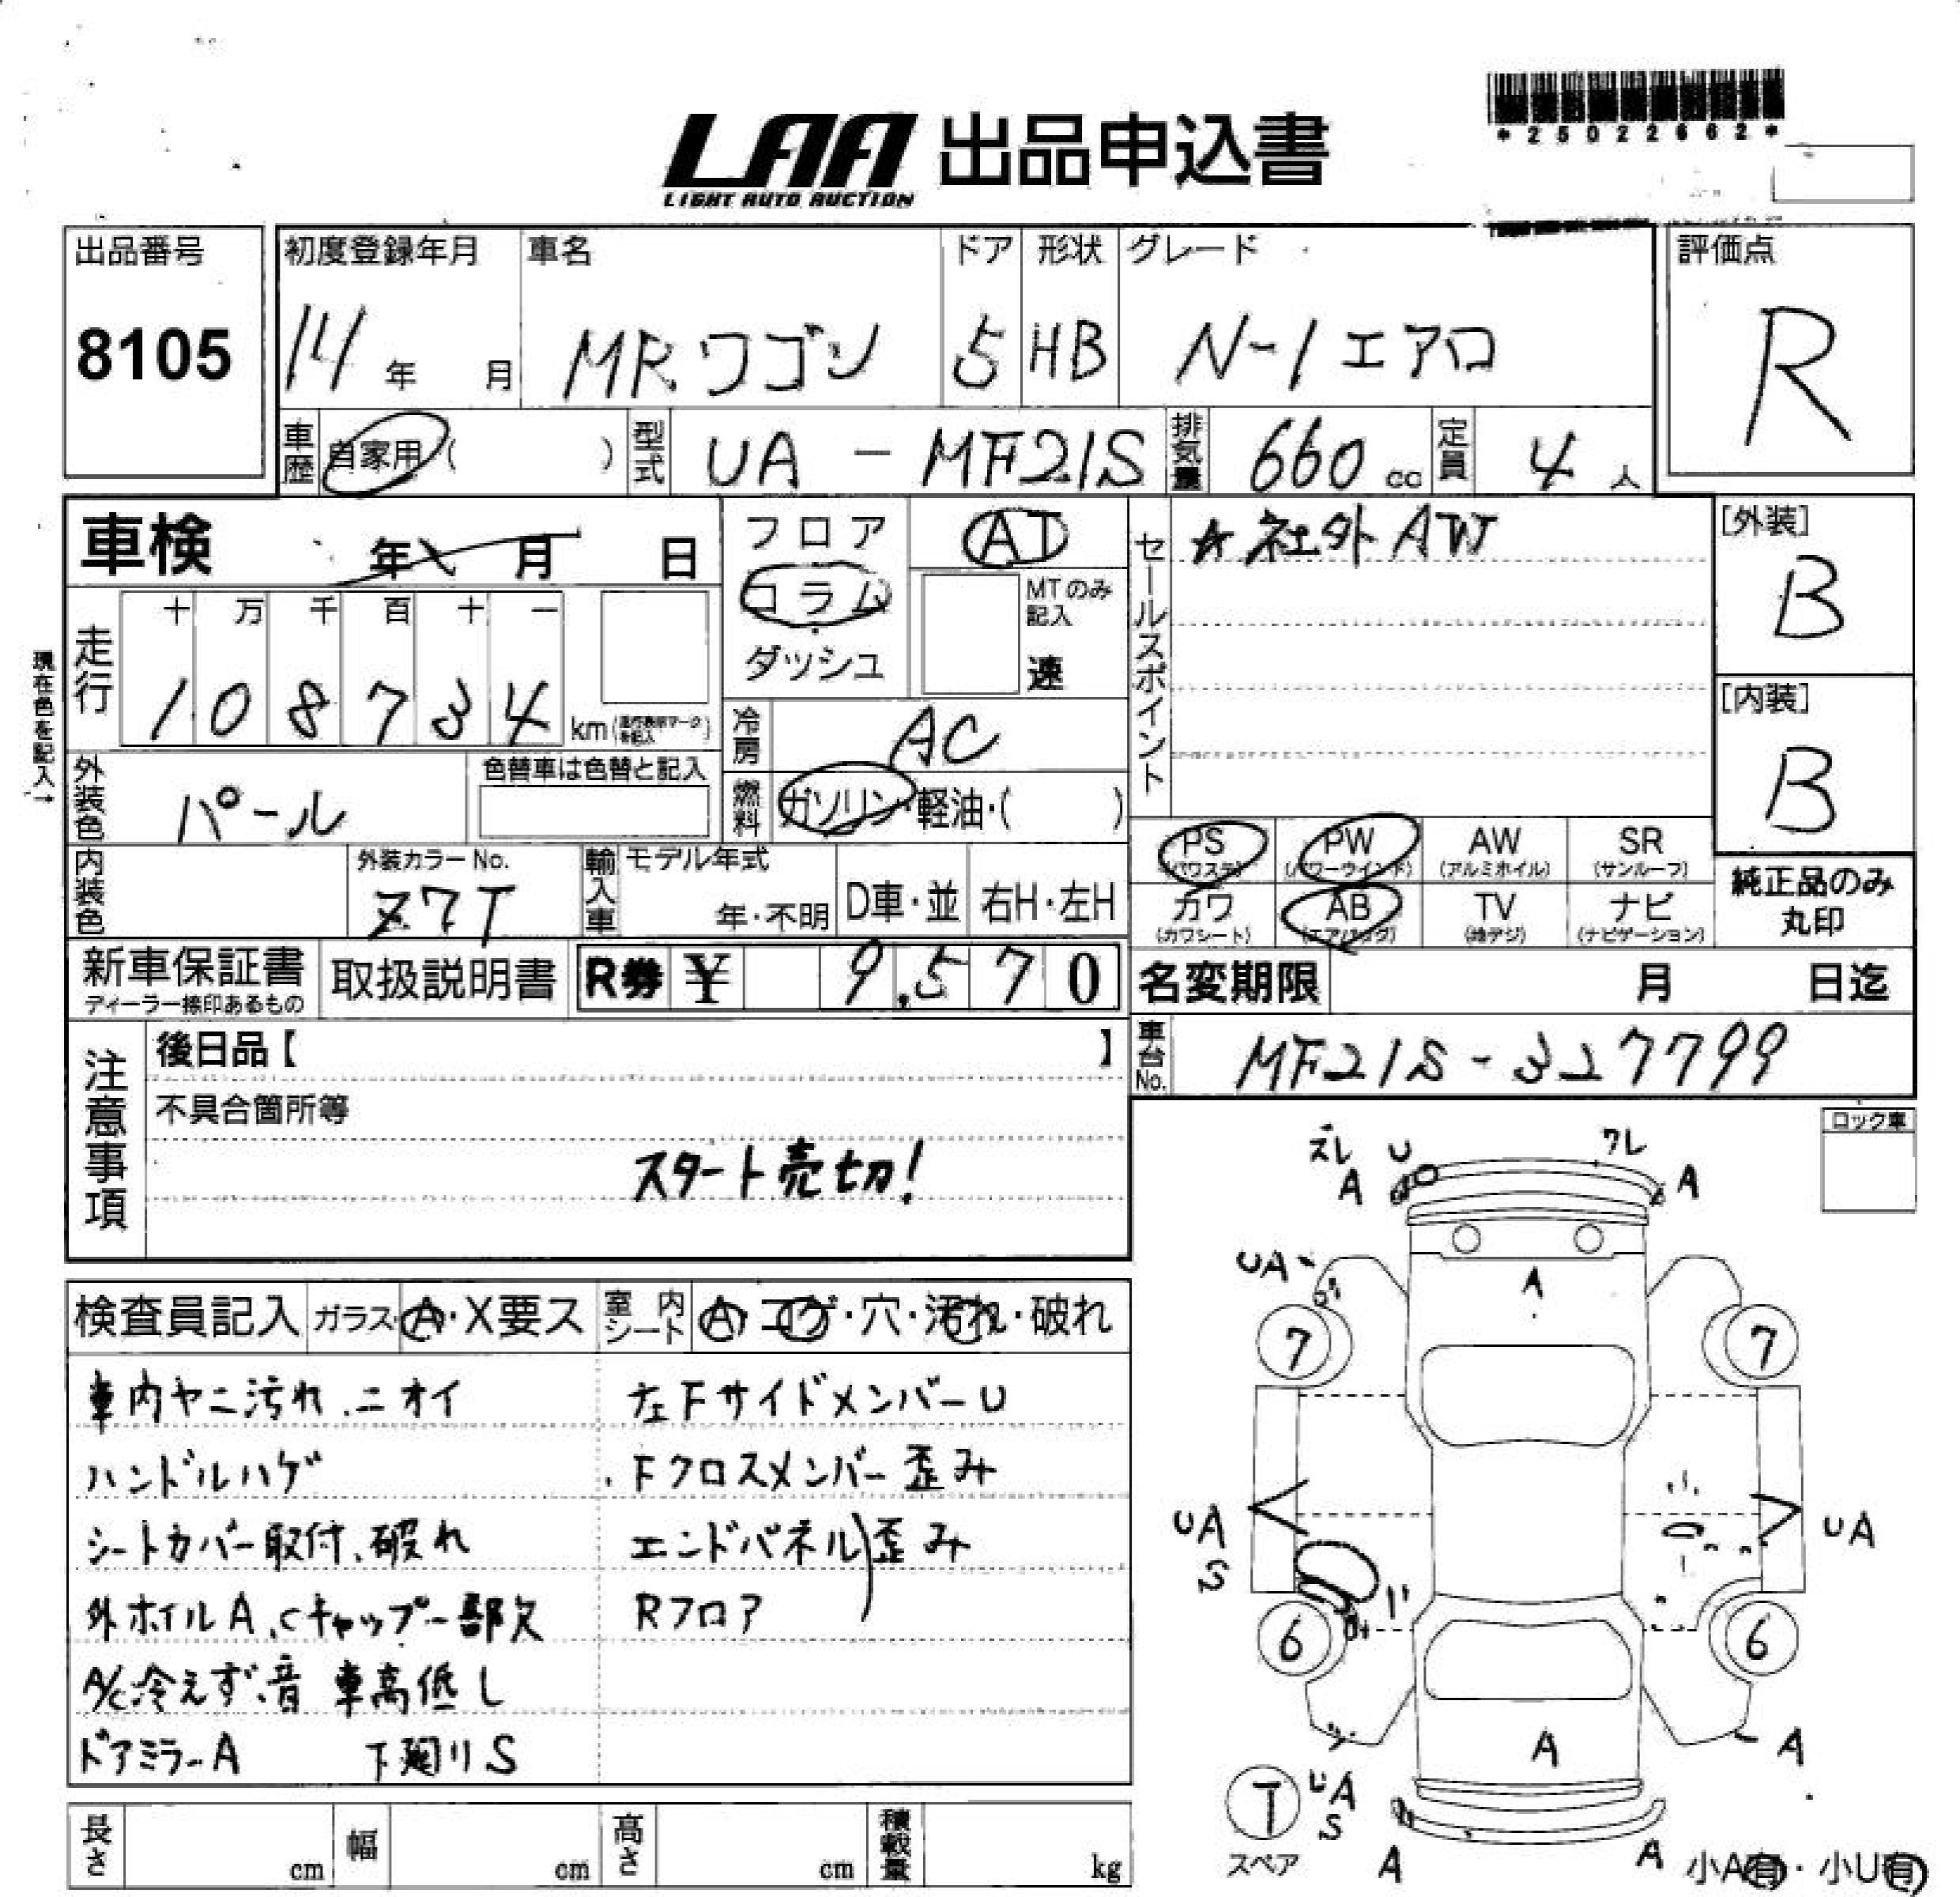 LAA 出品申込書
LIGHT AUTO AUCTION
*25022662*
出品番号 初度登録年月 車名 ドア 形状 グレード 評価点
8105 14年 月 MRワゴン 5 HB N-1エアロ R
車歴 自家用( ) 型式 UA-MF21S 排気量 660cc 定員 4人
車検 年 月 日
フロア
コラム
ダッシュ
AT
MTのみ記入
速
セールスポイント
☆社外AW
[外装]
B
[内装]
B
現在色を記入→
走行
十 万 千 百 十 一
1 0 8 7 3 4 km
冷房 AC
外装色 パール
色替車は色替と記入
燃料 ガソリン・軽油・( )
PS (パワステ) PW (パワーウインド) AW (アルミホイル) SR (サンルーフ)
カワ (カワシート) AB (エアバッグ) TV (地デジ) ナビ (ナビゲーション)
純正品のみ
丸印
内装色
外装カラーNo.
Z7T
輸入車 モデル年式
年・不明 D車・並 右H・左H
新車保証書 取扱説明書 R券 ¥ 9,570
ディーラー捺印あるもの
名変期限 月 日迄
車台No. MF21S-327799
注意事項
後日品【 】
不具合箇所等
スタート売切!
ロック車
検査員記入 ガラス A・X要ス 室内シート A・コゲ・穴・汚れ・破れ
車内ヤニ汚れ、ニオイ 左FサイドメンバーU
ハンドルハゲ Fクロスメンバー歪み
シートカバー取付、破れ エンドパネル)歪み
外ホイルA、Cキャップ一部欠 Rフロア
A/C冷えず、音 車高低し
ドアミラーA 下廻りS
ズレ U ワレ
A A
UA
A
7 7
UA UA
S
6 6
A A
T UA
S
スペア A A
小A有・小U有
長さ cm 幅 cm 高さ cm 積載量 kg